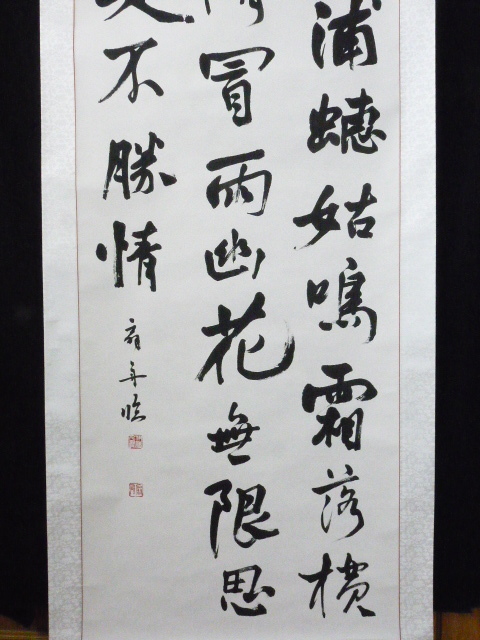 浦蟪姑鳴霜落横
冒雨幽花無限思
不勝情
臨